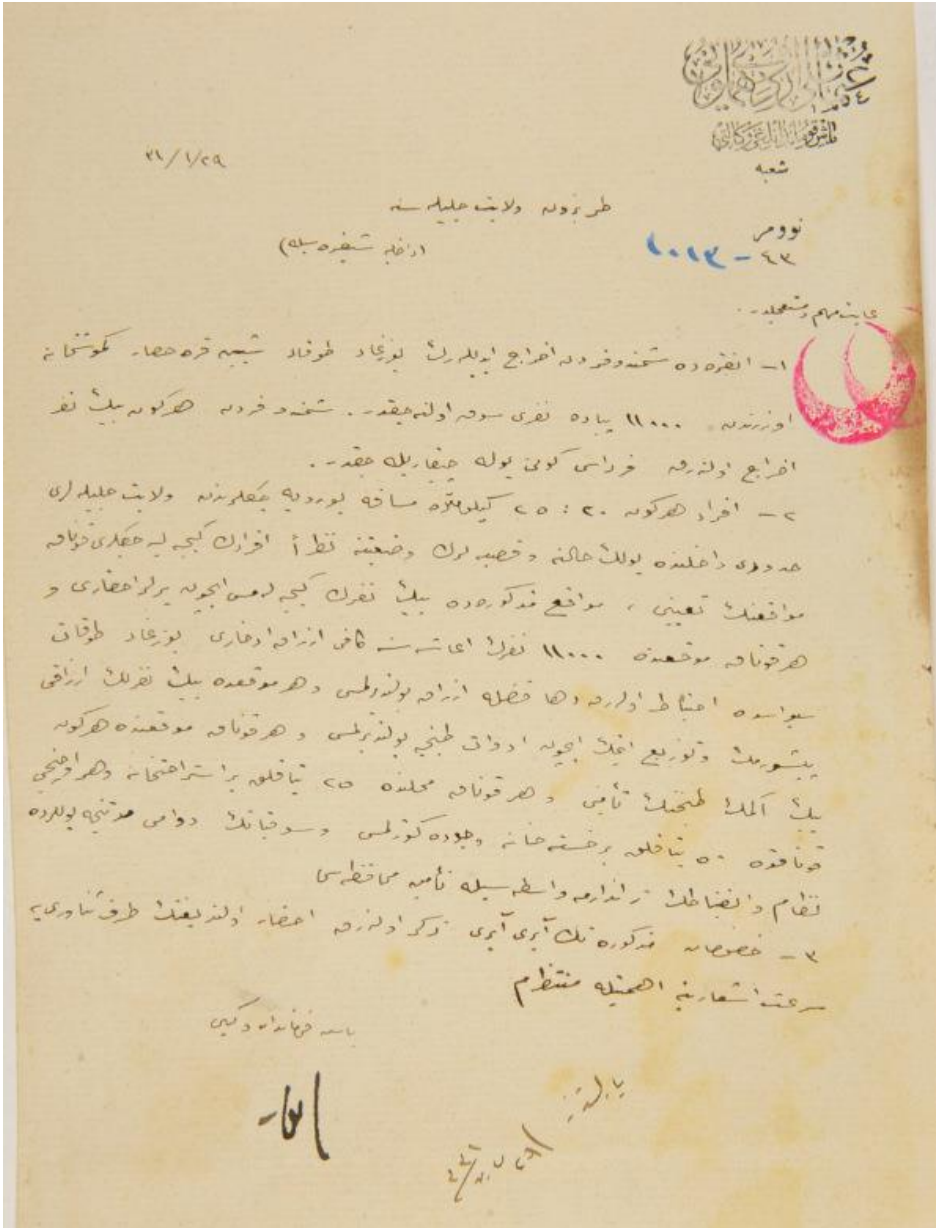 باش قوماندانلغى وكالتى
شعبه
٣١/١/٢٩
طربزون ولايت جليله سنه
(داخليه شيفره سيله)
نوومرو
٤٣ – ١٠١٣
غايت مهم ومستعجلدر.
١– انقره ده شمندوفردن اخراج ايديله رك يوزغاد طوقاد شبين قره حصار كموشخانه
اوزرندن ١١٠٠٠ پياده نفرى سوق اولنه جقدر. شمندوفردن هركون بيك نفر
اخراج اولنه رق فرداسى كونى يوله چيقاريله جقدر.
٢– افراد هركون ٢٠ : ٢٥ كيلومتره مسافه يورويه جكلرندن ولايت جليله لرى
حدودى داخلنده يوللرك حالنه وقصبه لرك وضعيتنه نظراً افرادك كيجه ليه جكلرى قوناق
مواقعنك تعيينى، مواقع مذكوره ده بيك نفرك كيجه لمسى ايچون يرلر احضارى و
هر قوناق موقعنده ١١٠٠٠ نفرك اعاشه سنه كافى ارزاق ادخارى يوزغاد طوقات
سيواسده احتياط اوله رق دها فضله ارزاق بولنديرلمسى وهر موقعده بيك نفرلك ارزاقى
پيشيرمك وتوزيع ايتمك ايچون ادوات طبخيه بولنديرلمسى وهر قوناق موقعنده هركون
بيك اكمك طبخنك تأمينى وهر قوناق محلنده ٢٥ يتاقلق بر استراحتخانه وهر اوچنجى
قوناقده ٥٠ يتاقلق بر خسته خانه وجوده كتيرلمسى وسوقياتك دوامى مدتنجه يوللرده
نظام وانضباطك ژاندارمه واسطه سيله تأمين محافظه سى
٣– خصوصات مذكوره نك آيرى آيرى ذكر اوله رق احضار اولنديغنك طرف ثناورى يه
سرعت اشعارينه اهميتله منتظرم
باش قوماندان وكيلى
انور